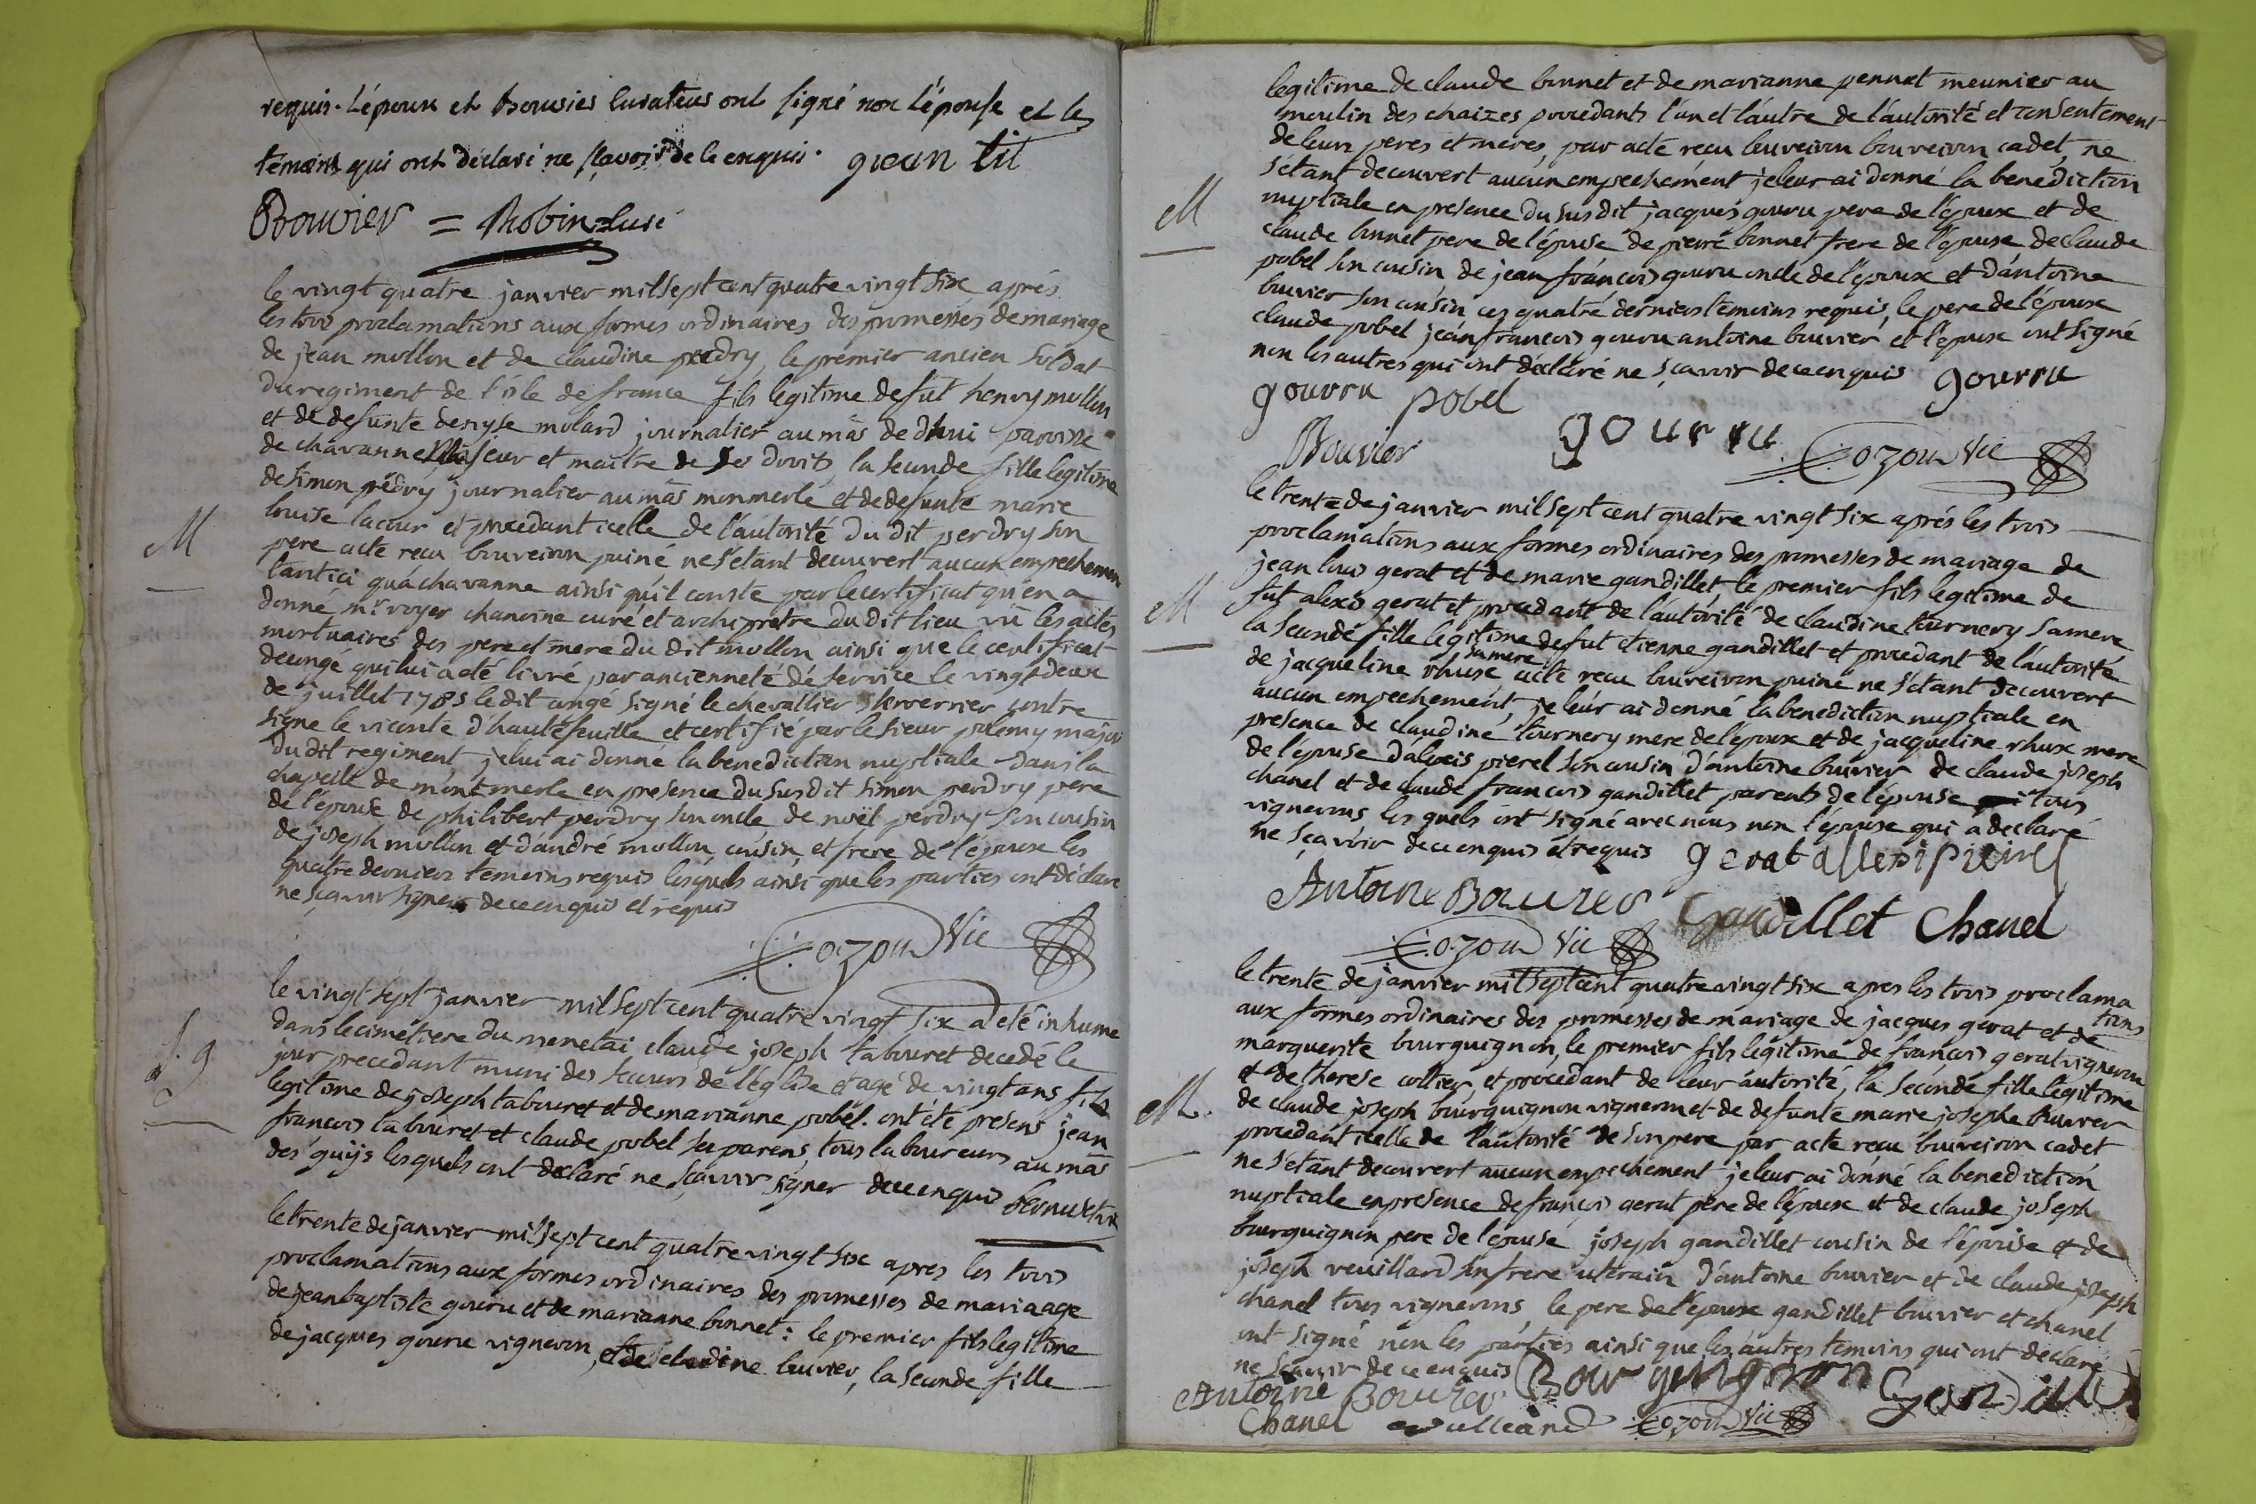 requis. L'époux et Bouvier curateur ont signé non l'épouse et les
témoins qui ont déclaré ne sçavoir de ce enquis. gran tit
Bouvier = Robin curé
le vingt quatre janvier mil sept cent quatre vingt six aprés
les trois proclamations aux formes ordinaires des promesses de mariage
de jean mollon et de claudine perdry, le premier ancien soldat
du regiment de l'isle de france fils legitime de fut henry mollon
et de defunte denyse molard journalier au mas de paroisse
de chavanne et maitre de ses droits la seconde fille legitime
de simon perdry journalier au mas monmerle et de defunte marie
louise lacour et procedant icelle de l'autorité du dit perdry son
pere acte recu bouveiron puiné ne s'étant decouvert aucun empechement
tant ici qu'a chavanne ainsi qu'il conste par le certificat qu'en a
donné mr royer chanoine curé et archiprêtre du dit lieu vû les actes
mortuaires des pere et mere du dit mollon ainsi que le certificat
de congé qui lui a été livré par ancienneté de service le vingt deux
de juillet 1785 le dit congé signé le chevallier contre
signé le viconte d'hautefeuille et certifié par le sieur major
du dit regiment, je lui ai donné la benediction nuptiale dans la
chapelle de montmerle en presence du susdit simon perdry pere
de l'épouse de philibert perdry son oncle de noël perdry son cousin
de joseph mollon et d'andré mollon cousin, et frere de l'époux les
quatre derniers temoins requis lesquels ainsi que les parties ont déclaré
ne sçavoir signer de ce enquis et requis
Cozon Vic
M
le vingt sept janvier mil sept cent quatre vingt six a été inhumé
dans le cimétiere du menetai claude joseph tabouret decedé le
jour precedant muni des secours de l'église et agé de vingt ans fils
legitime de joseph tabouret et de marianne pobel. ont été presens jean
francois tabouret et claude pobel ses parens, tous laboureurs au mas
des guijs lesquels ont declaré ne sçavoir signer de ce enquis
S. g
le trente de janvier mil sept cent quatre vingt six apres les trois
proclamations aux formes ordinaires des promesses de mariaage
de jean baptiste gouru et de marianne bonnet: le premier fils legitime
de jacques gouru vigneron, et de claudine bouvier, la seconde fille
legitime de claude bonnet et de marianne pennet meunier au
moulin des chaizes procedants l'un et l'autre de l'autorité et consentement
de leurs peres et meres, par acte recu bouveiron bouveiron cadet, ne
s'étant decouvert aucun empechement je leur ai donné la benediction
nuptiale en presence du susdit jacques gouru pere de l'époux et de
claude bonnet pere de l'épouse de pierre bonnet frere de l'épouse de claude
pobel son cousin de jean francois gouru oncle de l'époux et d'antoine
bouvier son cousin ces quatre derniers temoins requis, le pere de l'époux
claude pobel jean francois gouru antoine bouvier et l'époux ont signé
non les autres qui ont déclaré ne sçavoir de ce enquis gourru
gourru pobel
Bouvier gourru Cozon Vic
M
le trente de janvier mil sept cent quatre vingt six aprés les trois
proclamations aux formes ordinaires des promesses de mariage de
jean louis gerat et de marie gandillet, le premier fils legitime de
fut alexis gerat et procedant de l'autorité de claudine tournery sa mere
la seconde fille legitime de fut etienne gandillet et procedant de l'autorité
de jacqueline rhux sa mere acte recu bouveiron puiné ne s'étant decouvert
aucun empechement, je leur ai donné la benediction nuptiale en
presence de claudine tournery mere de l'époux et de jacqueline rhux mere
de l'epouse d'alexis pierel son cousin d'antoine bouvier de claude joseph
chanel et de claude francois gandillet parents de l'épouse tous
vignerons lesquels ont signé avec nous non l'épouse qui a declaré
ne sçavoir de ce enquis et requis gerat allexis pierel
Antoine Bouvier Gandillet Chanel
Cozon Vic
M
le trente de janvier mil sept cent quatre vingt six apres les trois proclama
tions
aux formes ordinaires des promesses de mariage de jacques gerat et de
marguerite bourguignon, le premier fils legitime de francois gerat vigneron
et de therese collier, et procedant de leur autorité, la seconde fille legitime
de claude joseph bourguignon vigneron et de defunte marie josephe bouvier
procedant icelle de l'autorité de son pere par acte recu bouveiron cadet
ne s'étant decouvert aucun empechement je leur ai donné la benediction
nuptiale en presence de françois gerat pere de l'époux et de claude joseph
bourguignon pere de l'épouse joseph gandillet cousin de l'épouse et de
joseph veuillard son frere uterain d'antoine bouvier et de claude joseph
chanel tous vignerons, le pere de l'épouse gandillet bouvier et chanel
ont signé non les parties ainsi que les autres temoins qui ont declaré
ne sçavoir de ce enquis Bourguignon Gandillet
Antoine Bouvier
Chanel vulliard Cozon Vic
M.